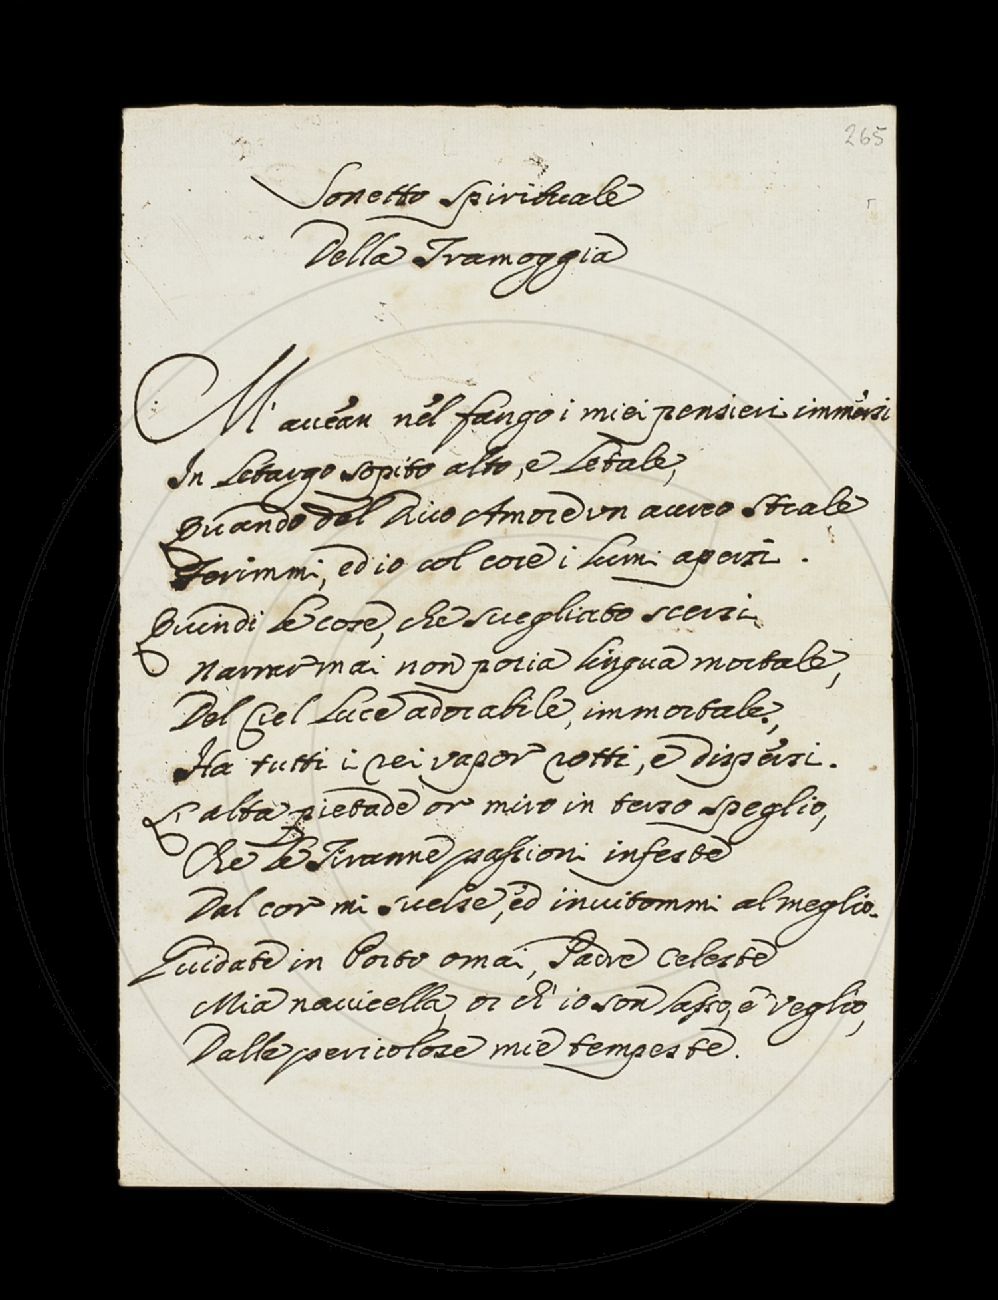 265
Sonetto Spirituale
Della Tramoggia
M' aueàn nèl fango i miei pensieri immèrsi
In Letargo sopito alto, e Letale,
Quando dal Diuo Amore un aureo Strale
Ferimmi, ed io col core i lumi apersi.
Quindi le cose, che suegliato scersi
Narrar mai non poria lingua mortale,
Del Ciel Luce adorabile, immortale,
Ha tutti i rei vapor rotti, e dispèrsi.
L' alta pietade or miro in terso speglio,
Che le Tiranne passioni infeste
Dal cor mi suelse, ed inuitommi al meglio.
Guidate in Porto omai, Padre Celeste
Mia nauicella, or ch' io son lasso, e veglio,
Dalle pericolose mie tempeste.